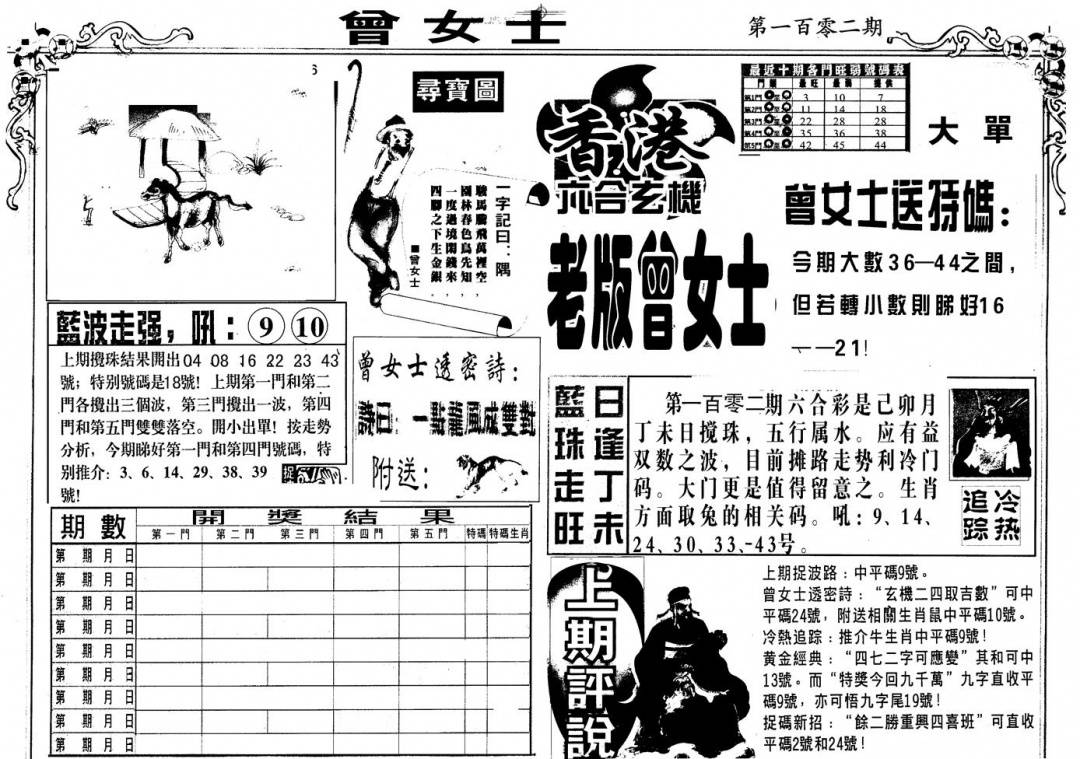 曾女士
第一百零二期
尋寶圖
一字記曰：隅
駿馬騰飛萬裡空，
園林春色鳥先知，
一度過境閑錢來，
四腳之下生金銀。
■曾女士
香港
六合玄機
老版曾女士
最近十期各門旺弱號碼表
門類 最旺 最弱 提供
第1門 3 10 7
第2門 11 14 18
第3門 22 28 28
第4門 35 36 38
第5門 42 45 44
大單
曾女士送特碼：
今期大數36—44之間，
但若轉小數則睇好16
——21！
藍波走强，吼：9 10
上期攪珠結果開出04 08 16 22 23 43
號；特别號碼是18號！上期第一門和第二
門各攪出三個波，第三門攪出一波，第四
門和第五門雙雙落空。開小出單！按走勢
分析，今期睇好第一門和第四門號碼，特
别推介：3、6、14、29、38、39
號！
曾女士透密詩：
詩曰：一點龍風成雙對
附送：
藍珠走旺
日逢丁未
第一百零二期六合彩是己卯月
丁未日搅珠，五行属水。应有益
双数之波，目前摊路走势利冷门
码。大门更是值得留意之。生肖
方面取兔的相关码。吼：9、14、
24、30、33、-43号。
冷热
追踪
開獎結果
期數 第一門 第二門 第三門 第四門 第五門 特碼 特碼生肖
第 期 月 日
第 期 月 日
第 期 月 日
第 期 月 日
第 期 月 日
第 期 月 日
第 期 月 日
第 期 月 日
第 期 月 日
上期評説
上期捉波路：中平碼9號。
曾女士透密詩：“玄機二四取吉數”可中
平碼24號，附送相關生肖鼠中平碼10號。
冷熱追踪：推介牛生肖中平碼9號！
黄金經典：“四七二字可應變”其和可中
13號。而“特獎今回九千萬”九字直收平
碼9號，亦可悟九字尾19號！
捉碼新招：“餘二勝重興四喜班”可直收
平碼2號和24號！